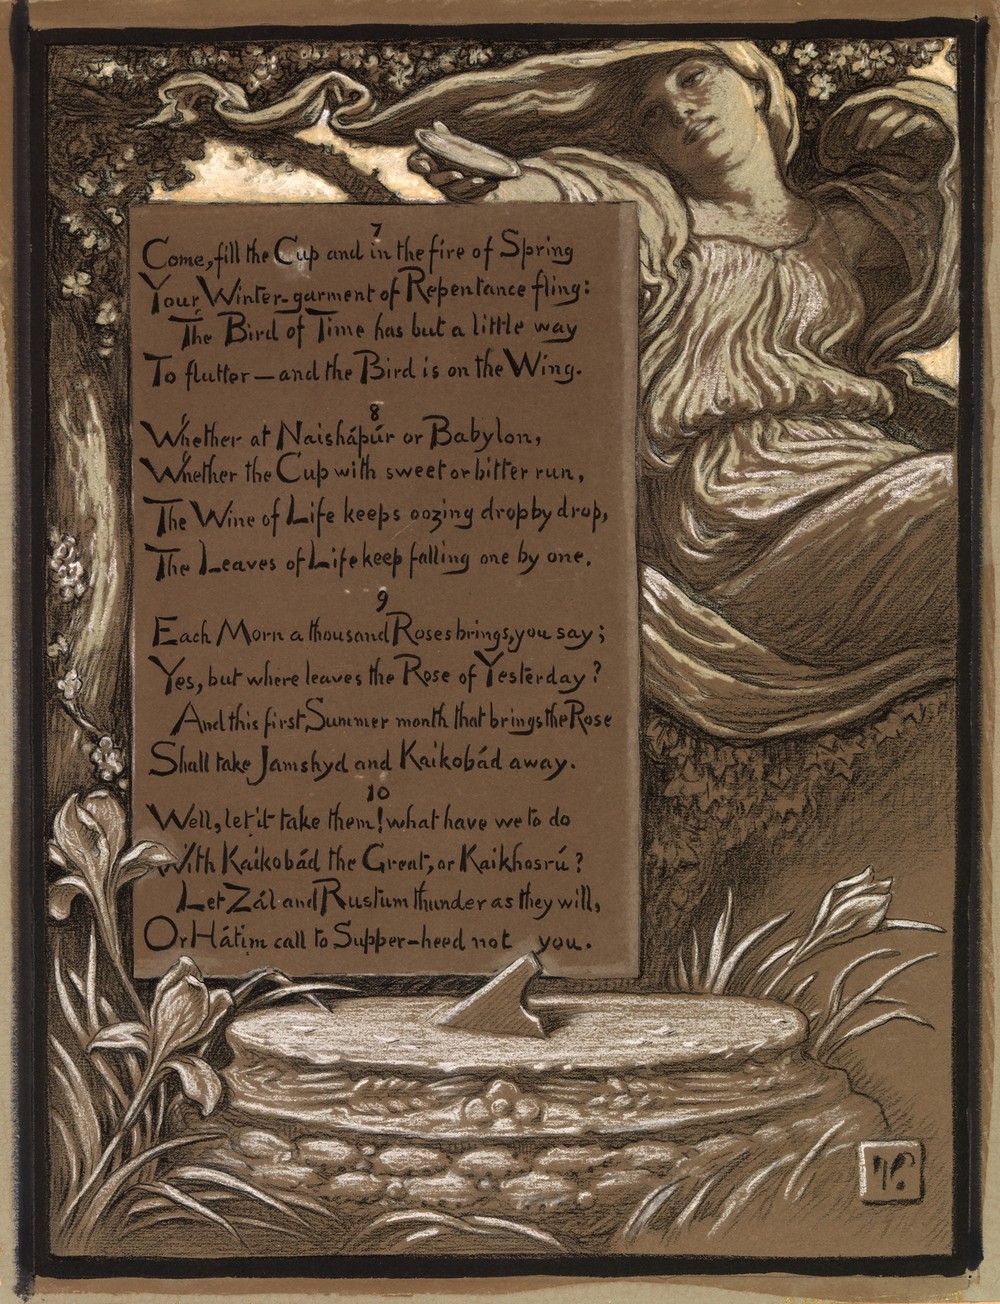 7
Come, fill the Cup and in the fire of Spring
Your Winter-garment of Repentance fling:
The Bird of Time has but a little way
To flutter — and the Bird is on the Wing.
8
Whether at Naishápúr or Babylon,
Whether the Cup with sweet or bitter run,
The Wine of Life keeps oozing drop by drop,
The Leaves of Life keep falling one by one.
9
Each Morn a thousand Roses brings, you say;
Yes, but where leaves the Rose of Yesterday?
And this first Summer month that brings the Rose
Shall take Jamshyd and Kaikobád away.
10
Well, let it take them! what have we to do
With Kaikobád the Great, or Kaikhosrú?
Let Zál and Rustum thunder as they will,
Or Hátim call to Supper-heed not you.
V.